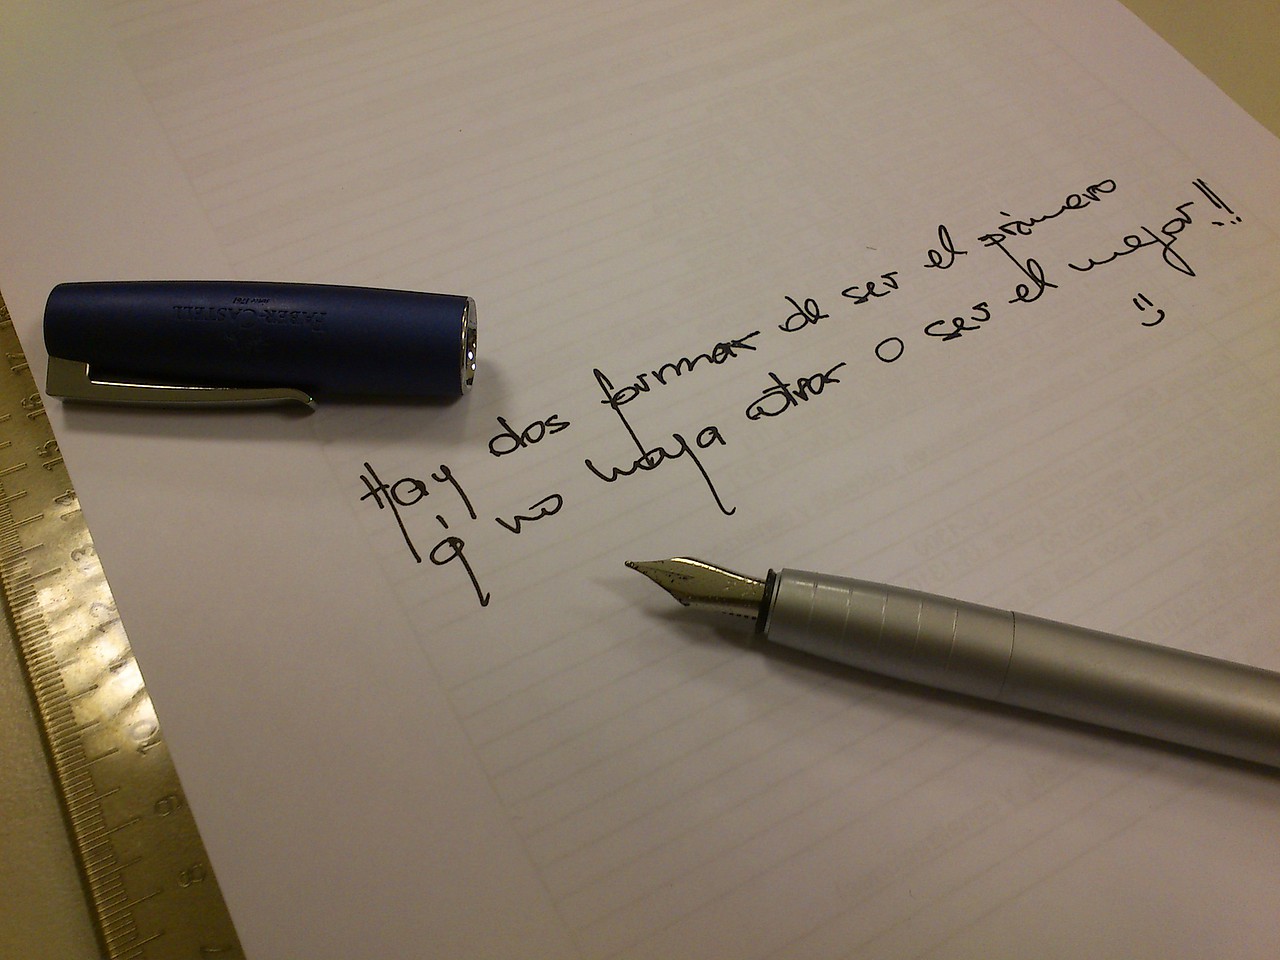 Hay dos formas de ser el primero
q' no haya otros o ser el mejor!!
FABER-CASTELL
since 1761
17
16
15
14
13
12
11
10
9
8
7